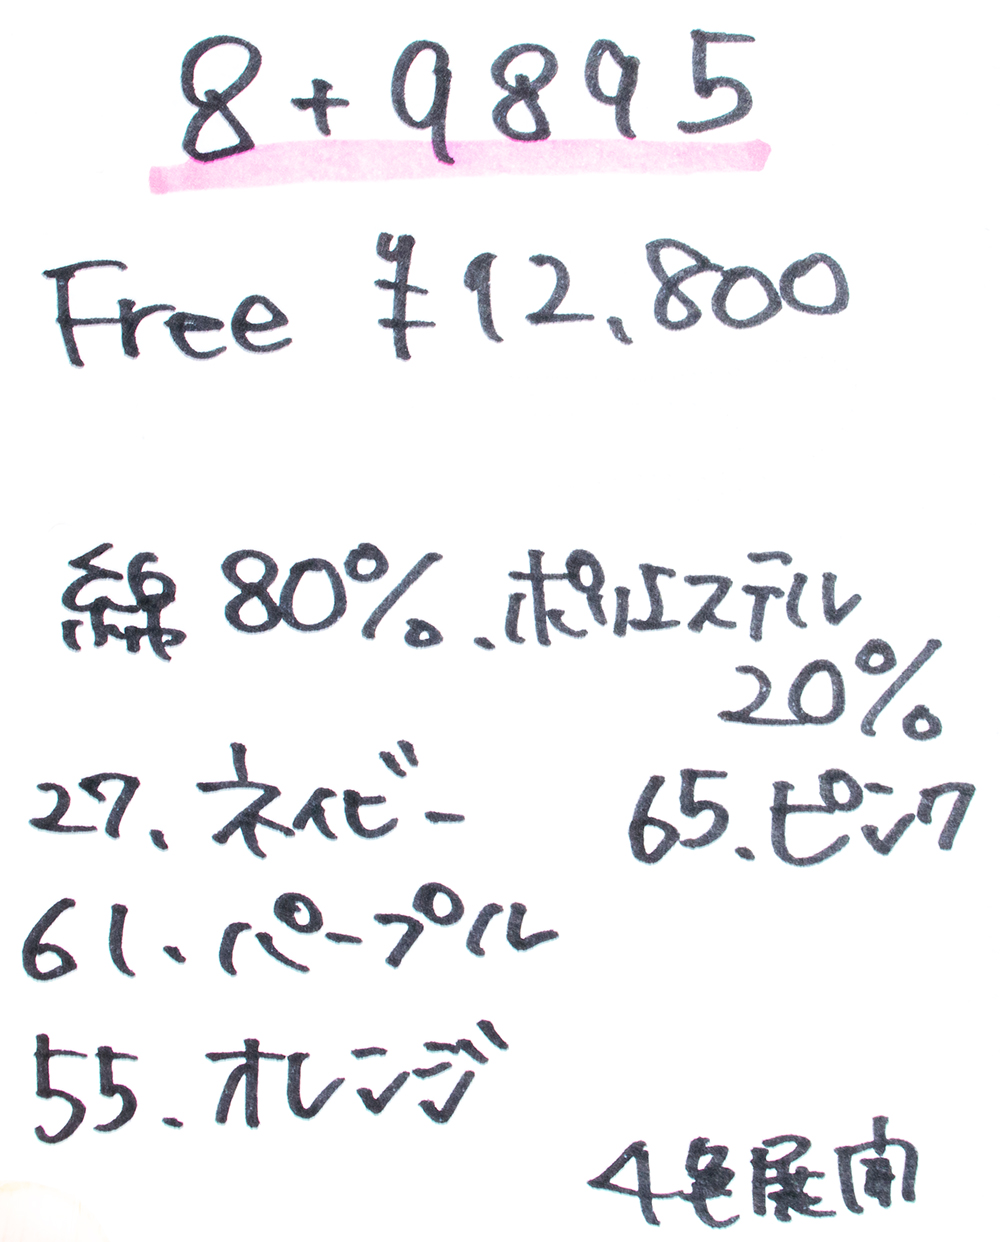 8+9895
Free ¥12,800
綿 80%、ポリエステル
20%
27. ネイビー
65. ピンク
61. パープル
55. オレンジ
4色展開